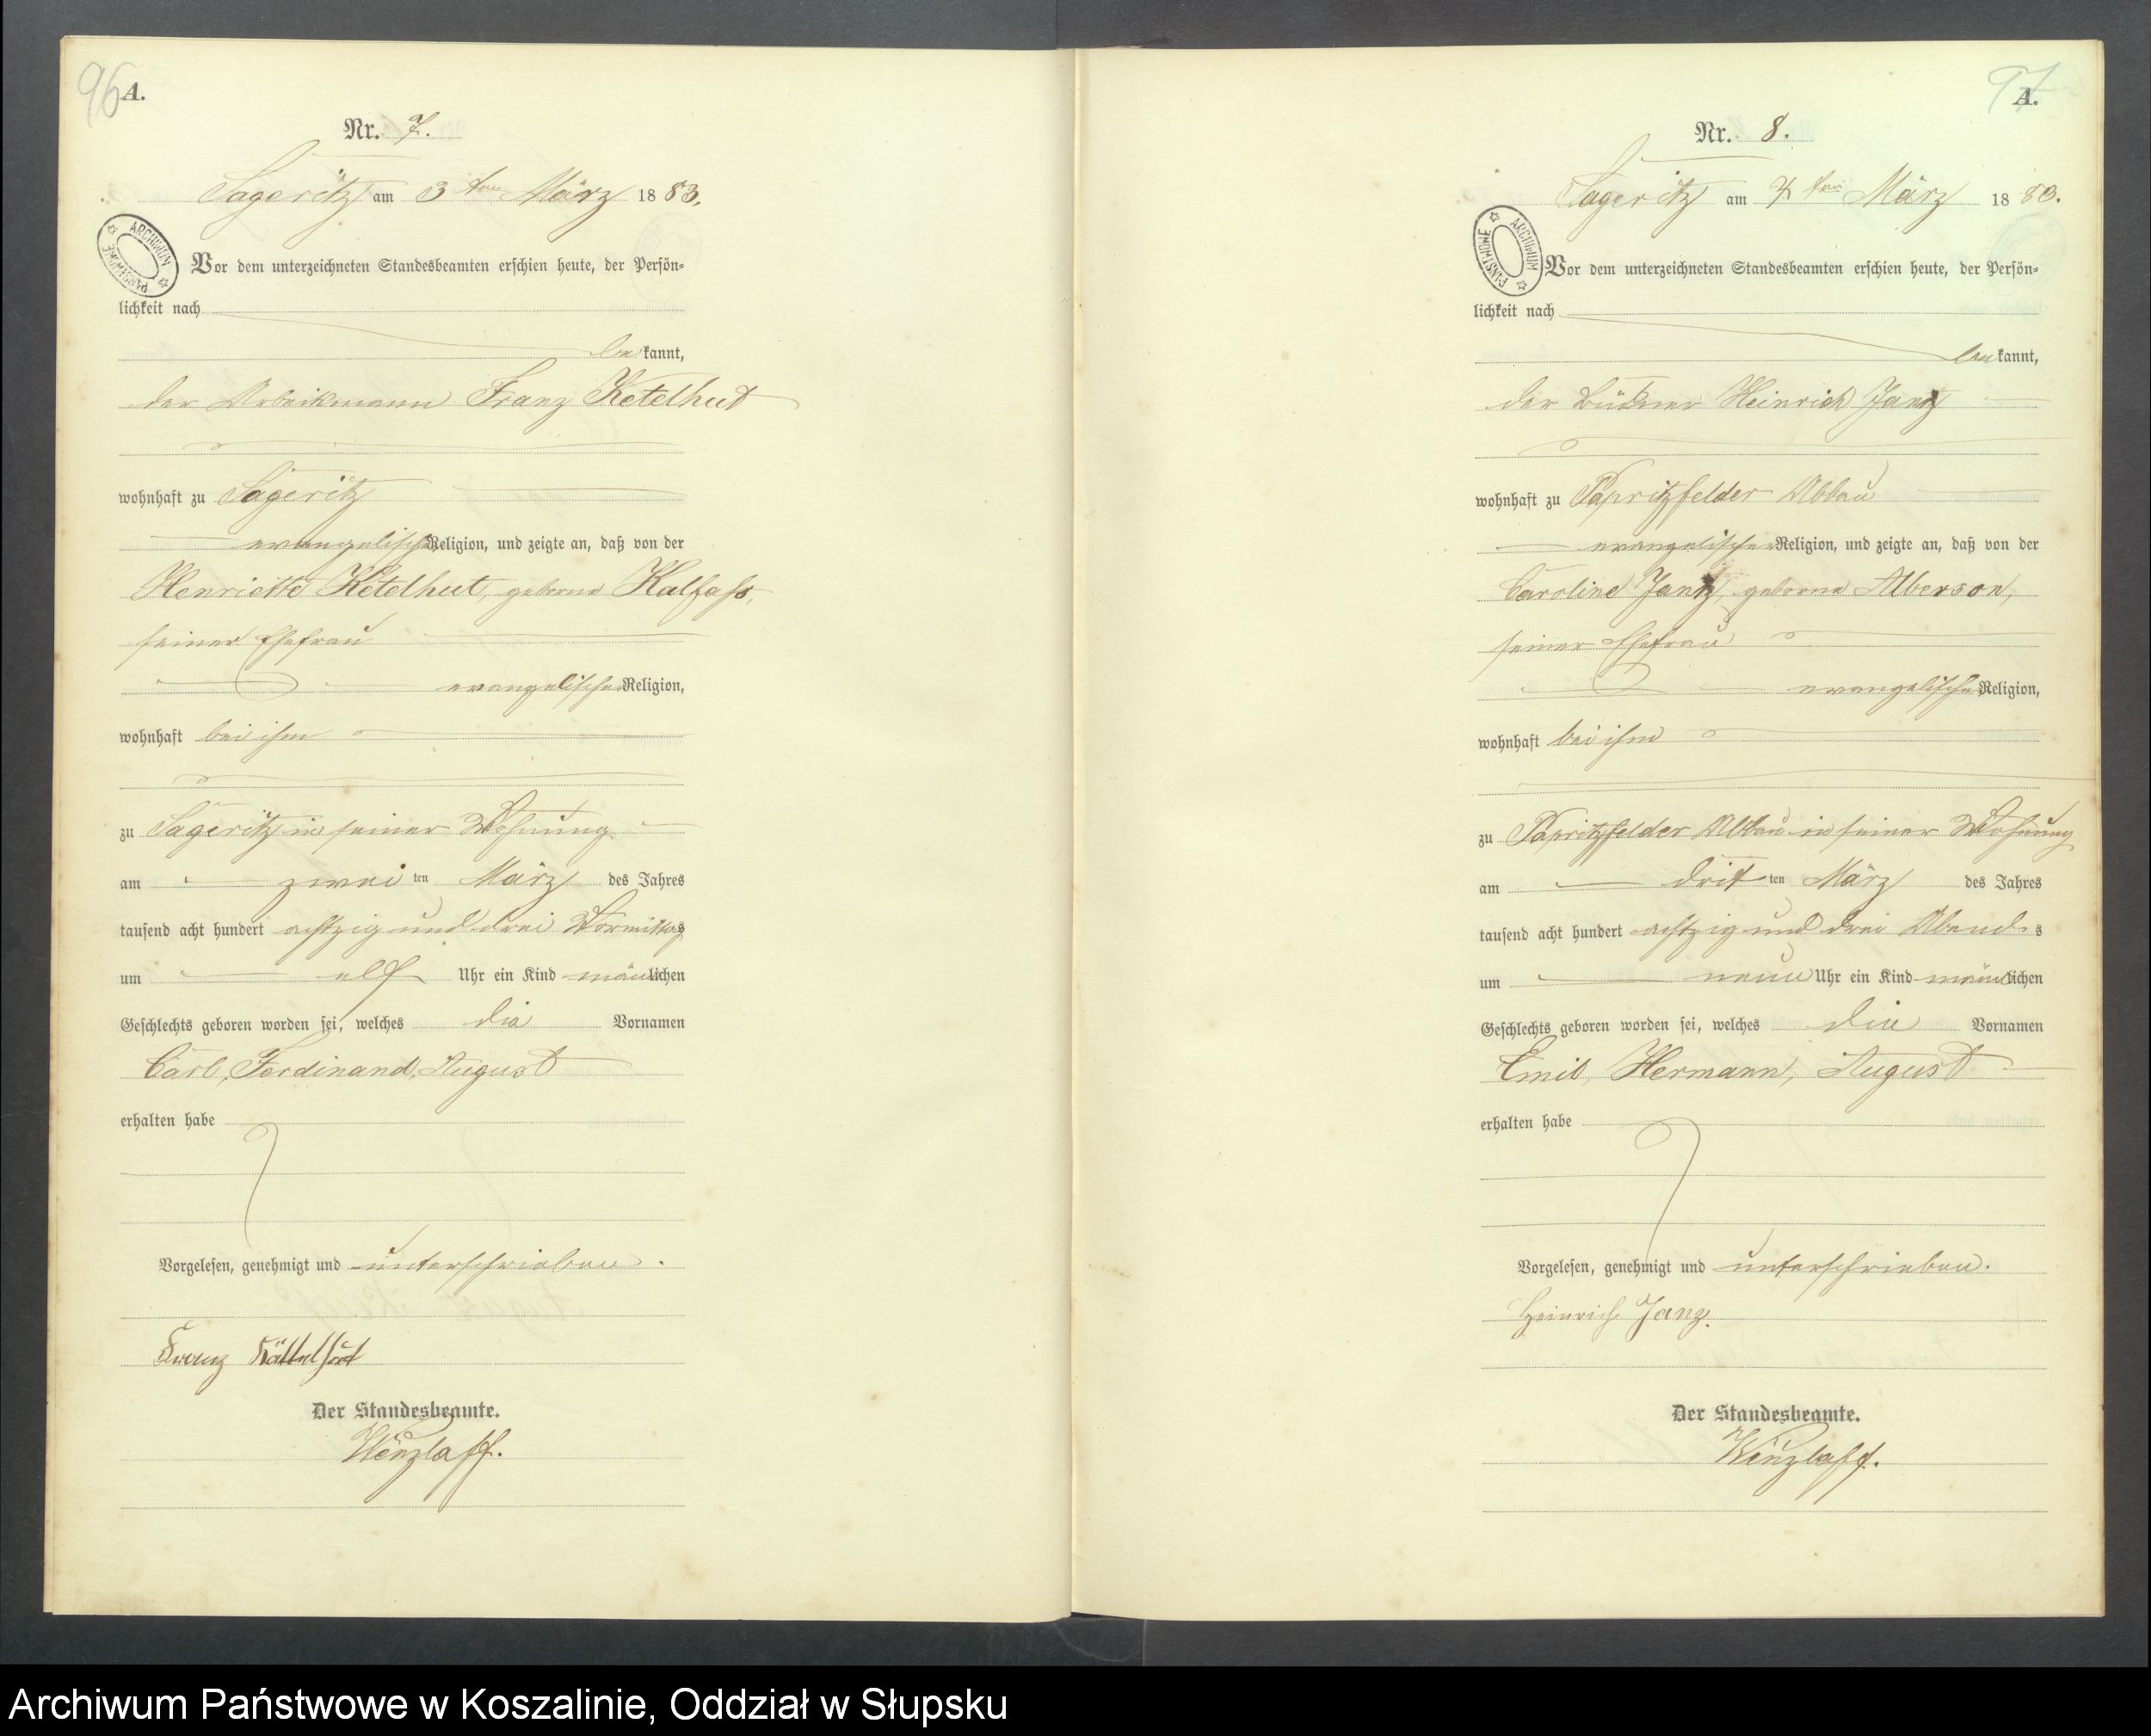 96
A.
Nr. 7.
Sageritz am 3ten März 1883.
ARCHIWUM PAŃSTWOWE
Vor dem unterzeichneten Standesbeamten erschien heute, der Persön-
lichkeit nach
bekannt,
der Arbeitsmann Franz Ketelhut
wohnhaft zu Sageritz
evangelischer Religion, und zeigte an, daß von der
Henriette Ketelhut, geborne Kalfass,
seiner Ehefrau
evangelischer Religion,
wohnhaft bei ihm
zu Sageritz in seiner Wohnung
am zweiten März des Jahres
tausend acht hundert achtzig und drei Vormittags
um elf Uhr ein Kind männlichen
Geschlechts geboren worden sei, welches die Vornamen
Carl, Ferdinand, August
erhalten habe
Vorgelesen, genehmigt und unterschrieben.
Franz Kättelhut
Der Standesbeamte.
Wenzlaff.
97
A.
Nr. 8.
Sageritz am 4ten März 1883.
ARCHIWUM PAŃSTWOWE
Vor dem unterzeichneten Standesbeamten erschien heute, der Persön-
lichkeit nach
bekannt,
der Büdner Heinrich Janz
wohnhaft zu Papritzfelder Abbau
evangelischer Religion, und zeigte an, daß von der
Caroline Janz, geborne Alberson,
seiner Ehefrau
evangelischer Religion,
wohnhaft bei ihm
zu Papritzfelder Abbau in seiner Wohnung
am dritten März des Jahres
tausend acht hundert achtzig und drei Abends
um neun Uhr ein Kind männlichen
Geschlechts geboren worden sei, welches die Vornamen
Emil, Hermann, August
erhalten habe
Vorgelesen, genehmigt und unterschrieben.
Heinrich Janz.
Der Standesbeamte.
Wenzlaff.
Archiwum Państwowe w Koszalinie, Oddział w Słupsku